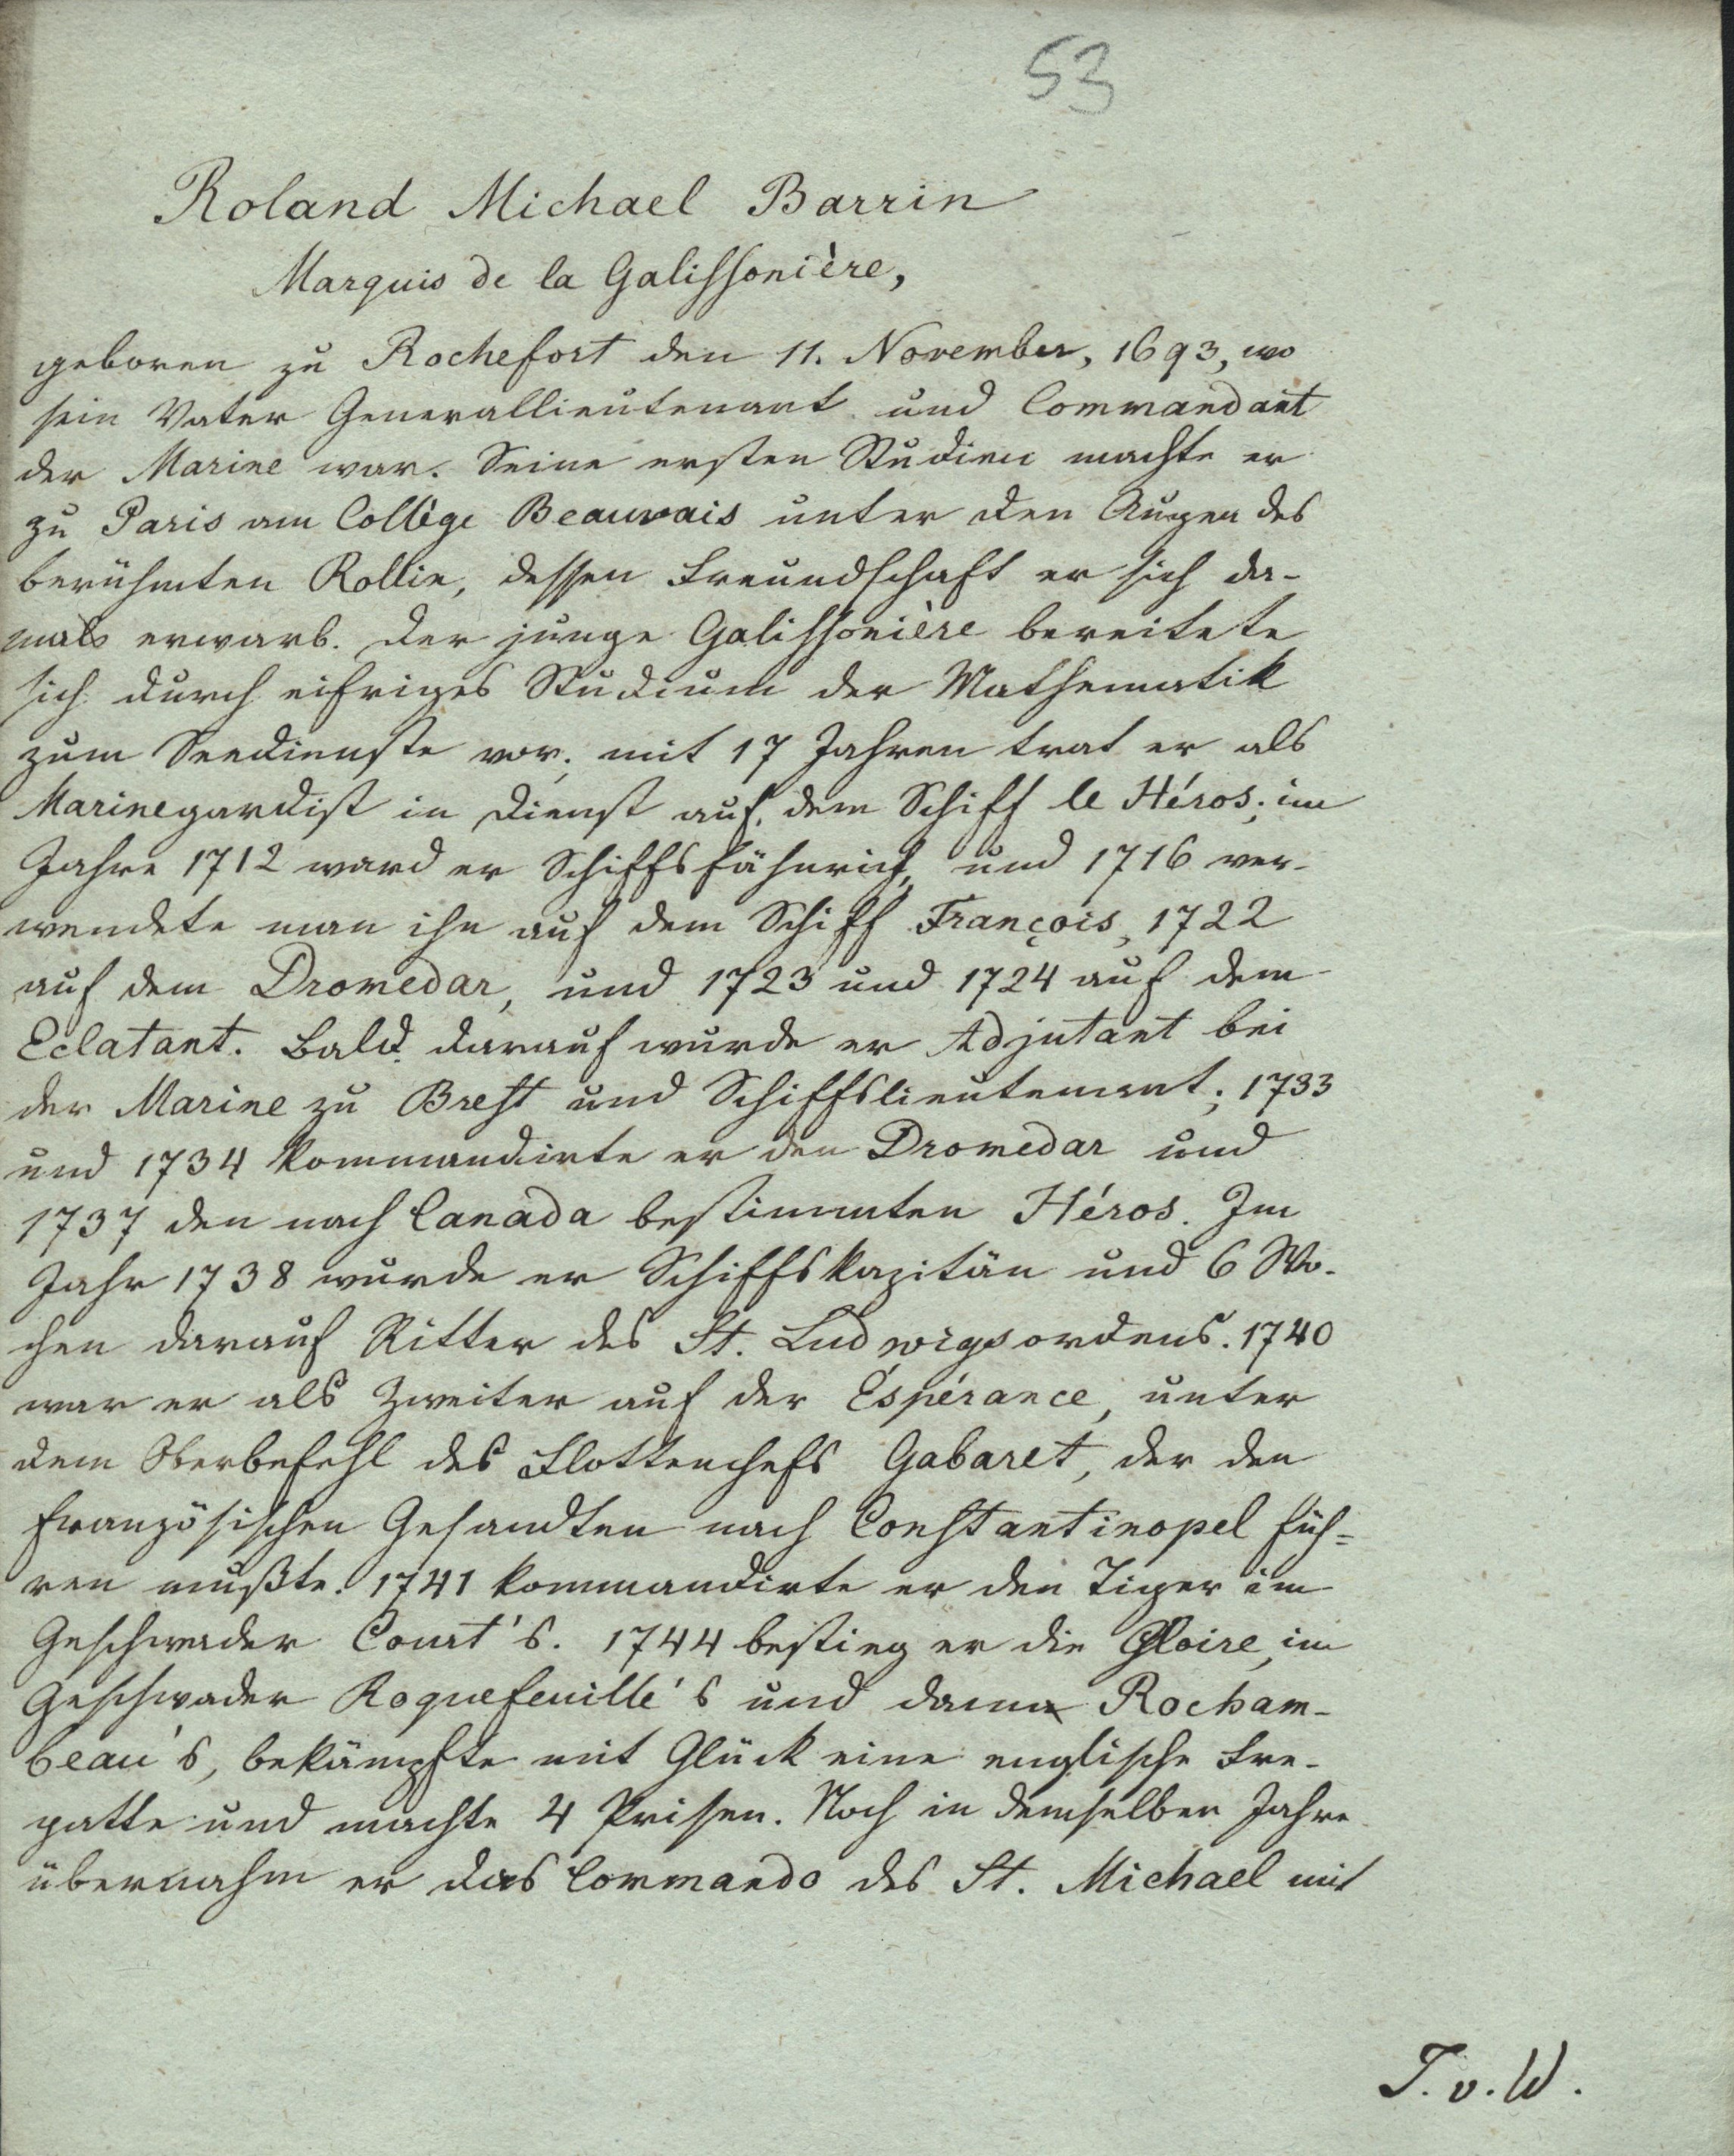 53
Roland Michael Barrin
Marquis de la Galissonière,
geboren zu Rochefort den 11. November, 1693, wo
sein Vater Generallieutenant und Commandant
der Marine war. Seine ersten Studien machte er
zu Paris am Collège Beauvais unter den Augen des
berühmten Rollin, dessen Freundschaft er sich da-
mals erwarb. Der junge Galissonière bereitete
sich durch eifriges Studium der Mathematik
zum Seedienste vor; mit 17 Jahren trat er als
Marinegardist in Dienst auf dem Schiff le Héros; im
Jahre 1712 ward er Schiffsfähnrich, und 1716 ver-
wendete man ihn auf dem Schiff François, 1722
auf dem Dromedar, und 1723 und 1724 auf dem
Eclatant. Bald darauf wurde er Adjutant bei
der Marine zu Brest und Schiffslieutenant; 1733
und 1734 kommandirte er den Dromedar und
1737 den nach Canada bestimmten Héros. Im
Jahr 1738 wurde er Schiffskapitän und 6 Wo-
chen darauf Ritter des St. Ludwigsordens. 1740
war er als Zweiter auf der Espérance, unter
dem Oberbefehl des Flottenchefs Gabaret, der den
französischen Gesandten nach Constantinopel füh-
ren mußte. 1741 kommandirte er den Tiger im
Geschwader Court's. 1744 bestieg er die Gloire, im
Geschwader Roquefeuille's und dann Rocham-
beau's, bekämpfte mit Glück eine englische Fre-
gatte und machte 4 Prisen. Noch in demselben Jahre
übernahm er das Commando des St. Michael mit
T. v. W.